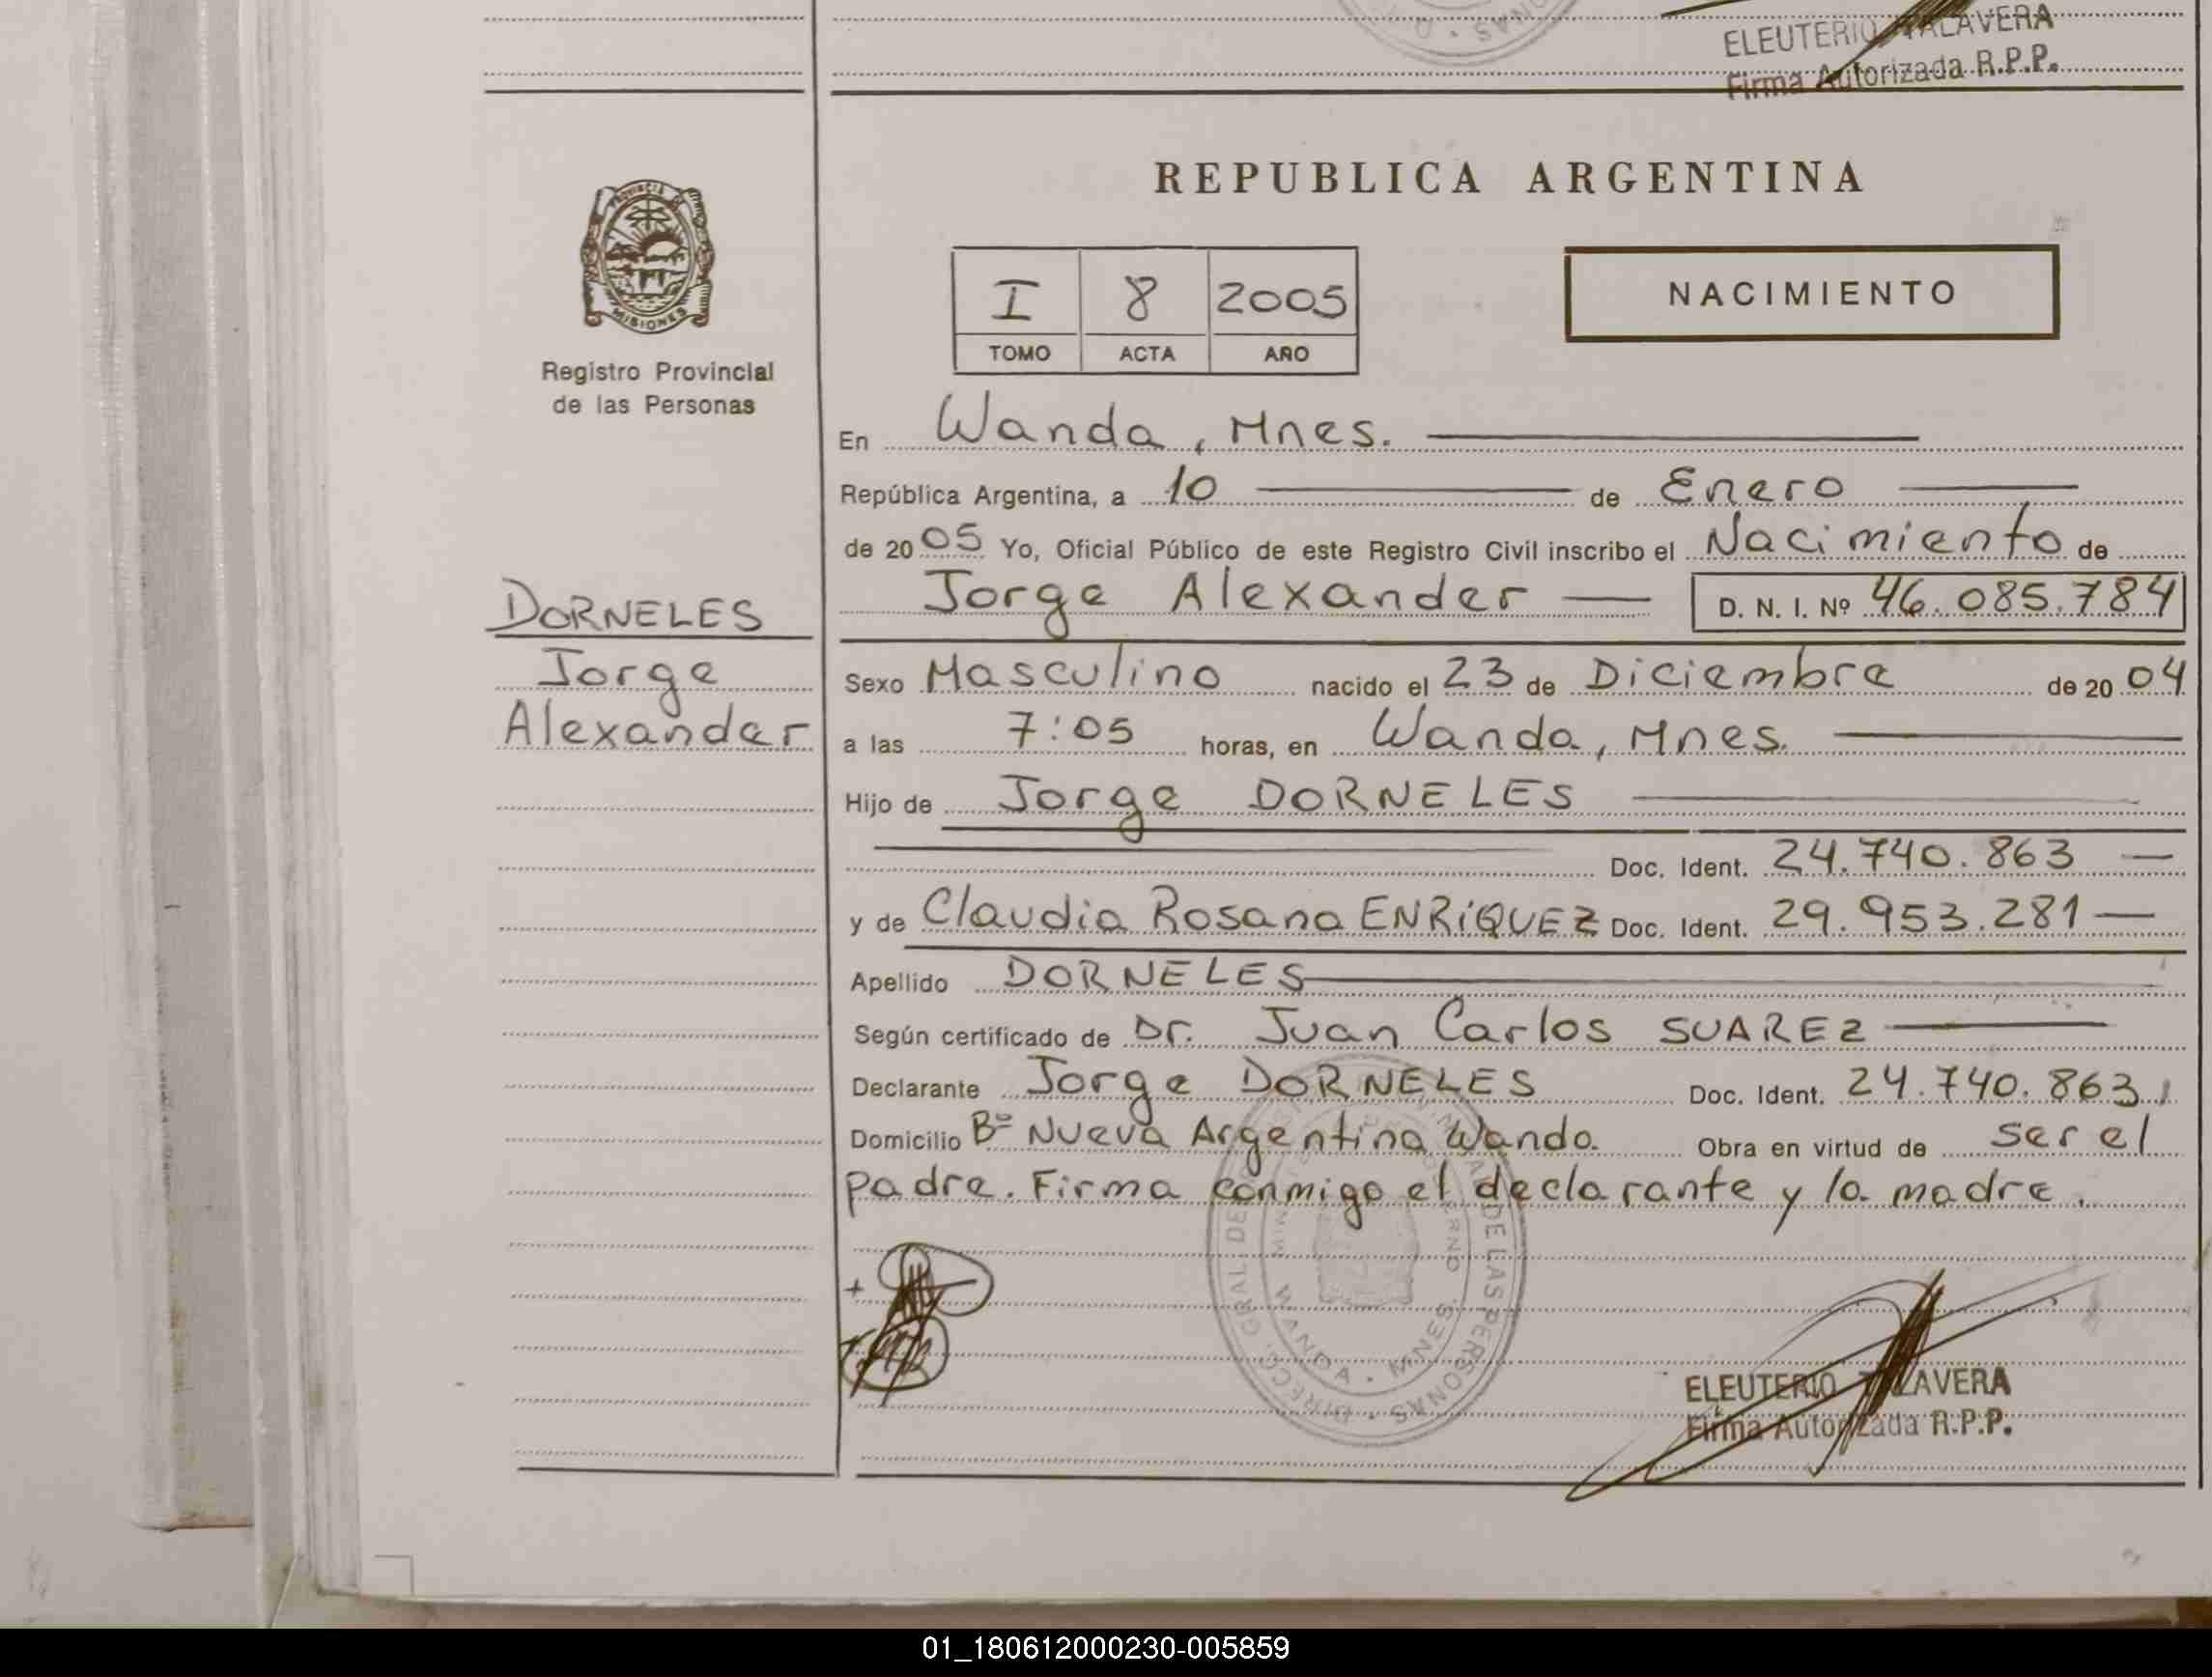 ELEUTERIO TALAVERA
Firma Autorizada R.P.P.
PROVINCIA DE
MISIONES
Registro Provincial
de las Personas
REPUBLICA ARGENTINA
I 8 2005
TOMO ACTA AÑO
NACIMIENTO
En Wanda, Mnes.
República Argentina, a 10 de Enero
de 2005 Yo, Oficial Público de este Registro Civil inscribo el Nacimiento de
Jorge Alexander D. N. I. Nº 46.085.784
DORNELES
Jorge
Alexander
Sexo Masculino nacido el 23 de Diciembre de 2004
a las 7:05 horas, en Wanda, Mnes.
Hijo de Jorge DORNELES
Doc. Ident. 24.740.863
y de Claudia Rosana ENRIQUEZ Doc. Ident. 29.953.281
Apellido DORNELES
Según certificado de Dr. Juan Carlos SUAREZ
Declarante Jorge DORNELES Doc. Ident. 24.740.863
Domicilio Bº Nueva Argentina Wanda. Obra en virtud de ser el
padre. Firma conmigo el declarante y la madre.
WANDA - MNES.
ELEUTERIO TALAVERA
Firma Autorizada R.P.P.
01_180612000230-005859